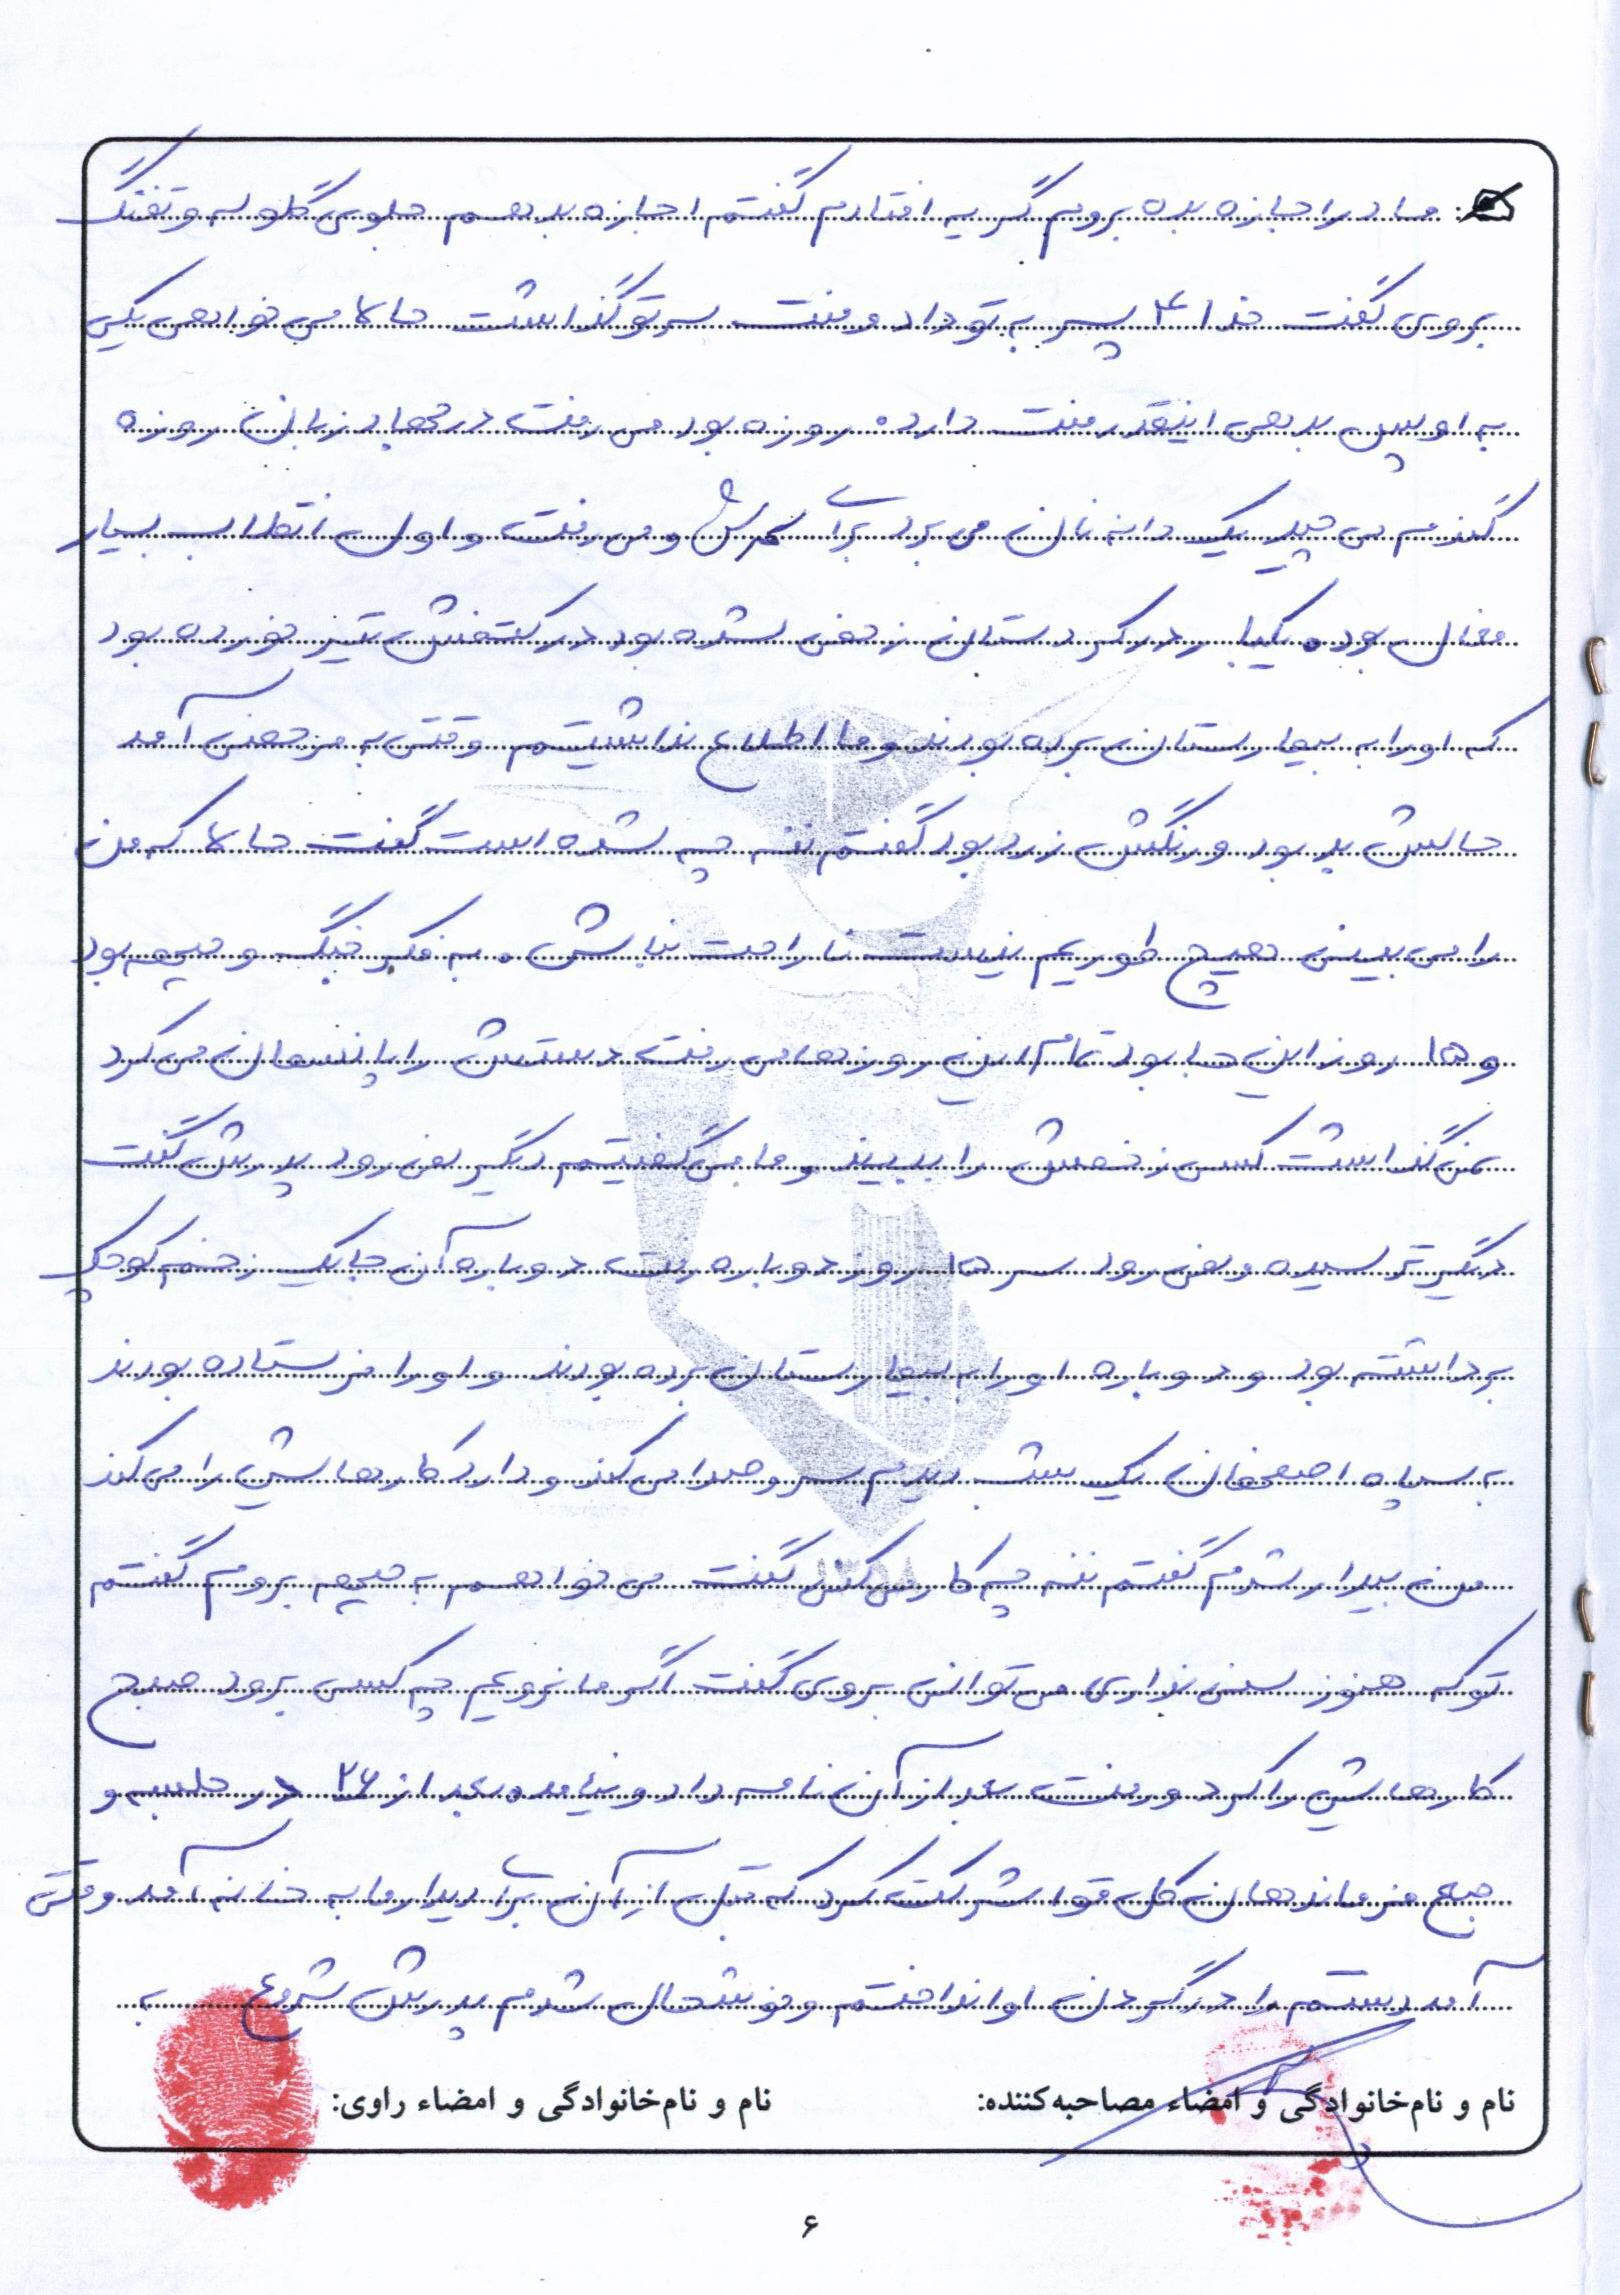 مادر اجازه بده بروم گریه افتادم گفتم اجازه بدهم جلوی گلوله و تفنگ
بروی گفت خدا ۴ پسر به تو داد و منت سر تو گذاشت حالا می خواهی یکی
به او پس بدهی اینقدر منت دارد. روزه بود می رفت در جهاد زبان روزه
گندم می چید یک دانه نان می برد برای سحرش و می رفت و اول انقلاب بسیار
فعال بود. یکبار در کردستان زخمی شده بود در کتفش تیر خورده بود
که او را به بیمارستان برده بودند و ما اطلاع نداشتیم وقتی به مرخصی آمد
حالش بد بود و رنگش زرد بود گفتم ننه چه شده است گفت حالا که من
را می بینی هیچ طوریم نیست ناراحت نباش. به فکر جنگ و جبهه بود
و ۱۵ روز این جا بود تمام این روزها می رفت دستش را پانسمان می کرد
نمی گذاشت کسی زخمش را ببیند و ما می گفتیم دیگر نمی رود پدرش گفت
دیگر ترسیده و نمی رود سر ۱۵ روز دوباره رفت دوباره آن جا یک زخم کوچک
برداشته بود و دوباره او را به بیمارستان برده بودند و او را فرستاده بودند
به سپاه اصفهان یک شب دیدم سر و صدا می کند و دارد کارهایش را می کند
من بیدار شدم گفتم ننه چه کار می کنی گفت می خواهم به جبهه بروم گفتم
تو که هنوز سنی نداری می توانی بروی گفت اگر ما نرویم چه کسی برود صبح
کارهایش را کرد و رفت بعد از آن نامه داد و نیامد. بعد از ۲۶ در جلسه و
جمع فرماندهان کل قوا شرکت کرد که قبل از آن برای دیدار ما به خانه آمد وقتی
آمد دستم را در گردن او انداختم و خوشحال شدم پدرش شروع به
نام و نام‌خانوادگی و امضاء مصاحبه‌کننده: نام و نام‌خانوادگی و امضاء راوی:
۶